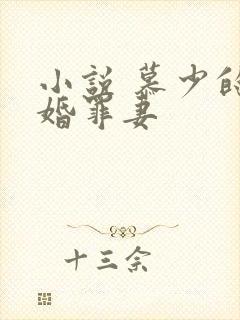 小说 慕少的
婚罪妻
十三余